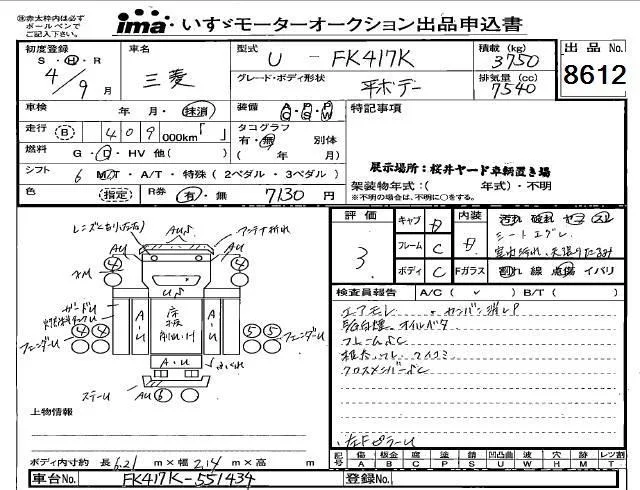 ㊟赤太枠内は必ず
ボールペンで
ご記入下さい。
ima いすゞモーターオークション出品申込書
初度登録
S・H・R
4/9月
車名
三菱
型式
U - FK417K
グレード・ボディ形状
平ボデー
積載(kg)
3750
排気量(cc)
7540
出品No.
8612
車検
年 月・抹消
装備
A/C・P/S・P/W
特記事項
走行 B 409 000km「 」
タコグラフ
有・無 別体
( 年 月)
燃料 G・D・HV 他( )
シフト 6 MT・A/T・特殊(2ペダル・3ペダル)
展示場所:桜井ヤード車輌置き場
架装物年式:( 年式)・不明
※不明の場合は、不明に○をする。
色 指定 R券 有・無 7130円
評価
3
キャブ D
フレーム C
ボディ C
内装 D
汚れ 破れ ヤニ スレ
シートエグレ
Fガラス 割れ 線 点傷 イバリ
検査員報告 A/C( ✓ ) B/T( )
エアモレ
オイルバタ
フレームSC
クロスメンバーSC
左FピラーU
レンズヒビ(左右)
AUS
アンテナ折れ
AU
AU
4
4
US
A・U
A・U
4 4
5 5
フェンダーU
フェンダーU
A・U
ステーU
AU 6
上物情報
ボディ内寸約 長6.21m×幅2.14m×高 m
記号 傷A 板金B 腐C 塗P 錆S 凹凸曲U 波W 穴H 跡M レツ割T
車台No. FK417K-551434
登録No.